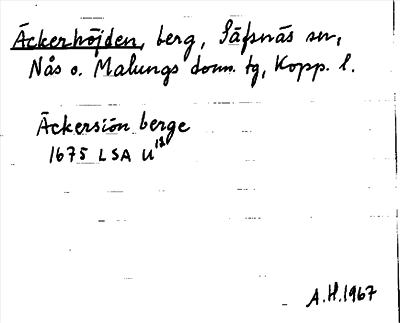 Äckerhöjden, berg, Säfsnäs sn,
Nås o. Malungs dom. tg, Kopp. l.
Äckersiön berge
1675 LSA U¹²
A.H. 1967